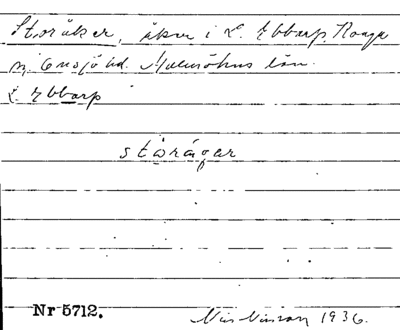 Storåker, åker i L. Ebbarp. Konga
Onsjö hd. Malmöhus län.
L. Ebbarp
storågar
Nr 5712.
Nils Nilsson 1936.